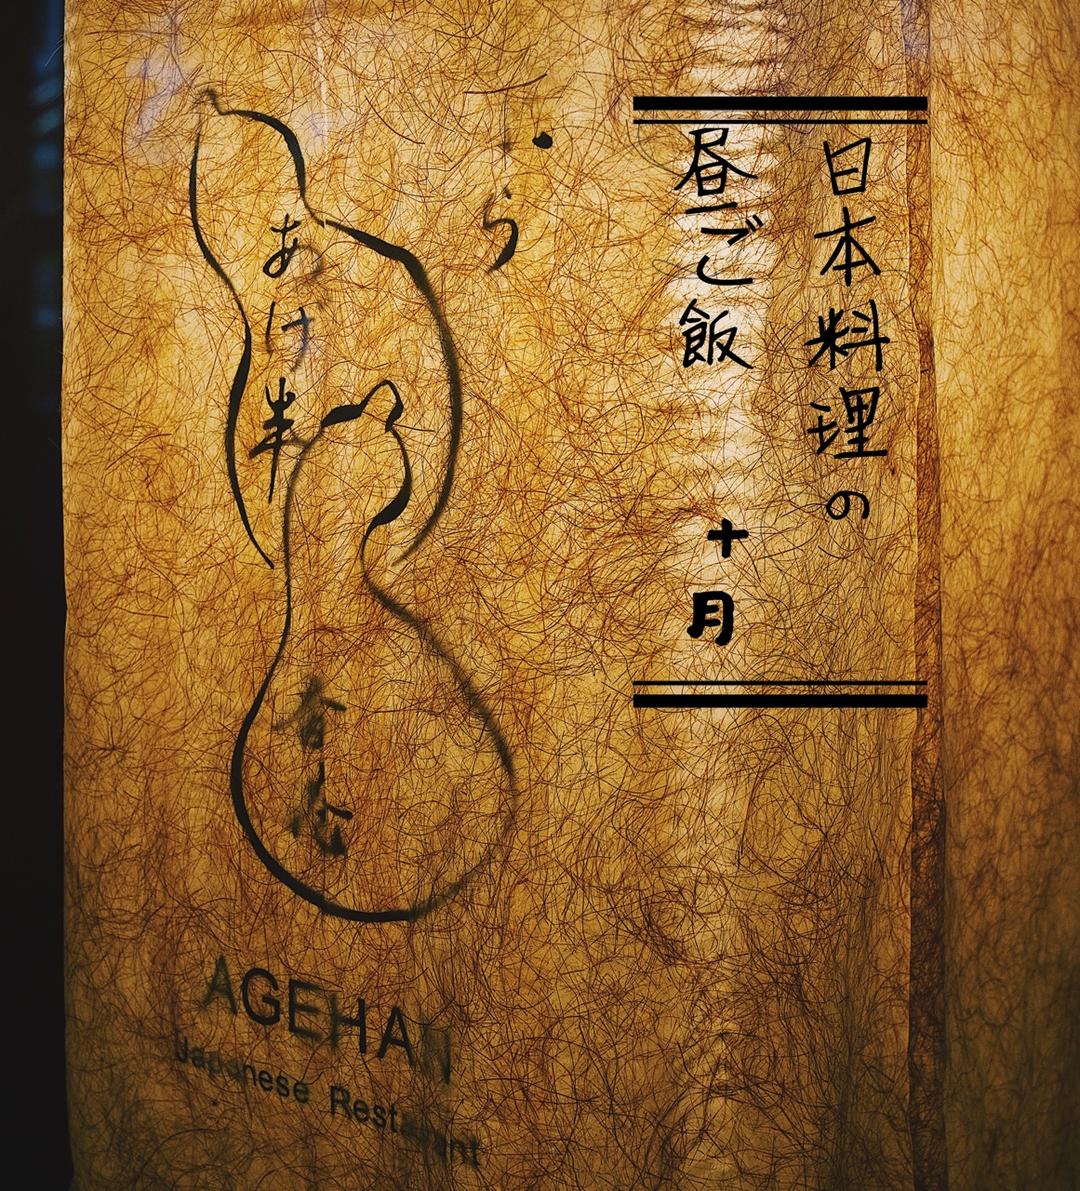 日本料理の
昼ご飯 十月
あけ半
AGEHAN
Japanese Restaurant